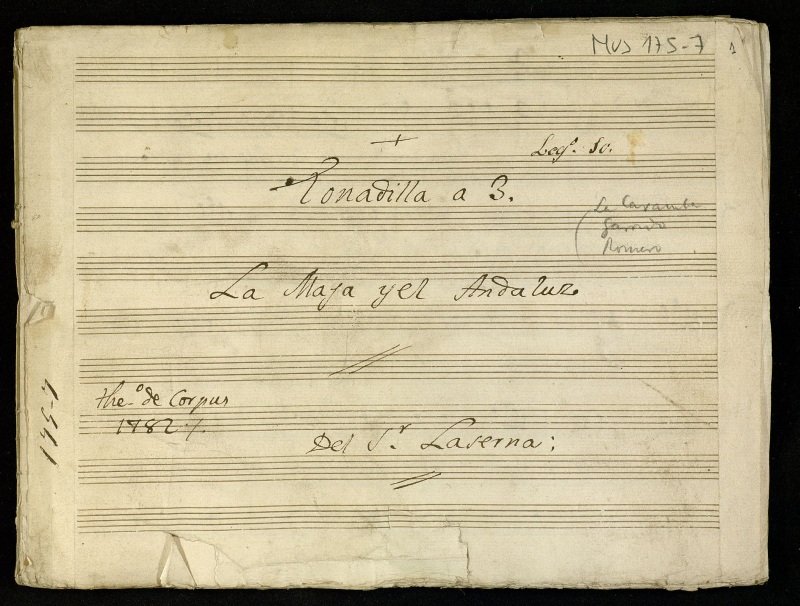 Mus 175-7
1
+
Leg.º 10.
Tonadilla a 3.
La Caramba
Garrido
Romero
La Maja y el Andaluz
the.º de Corpus
1782
Del S.r Laserna:
175-7